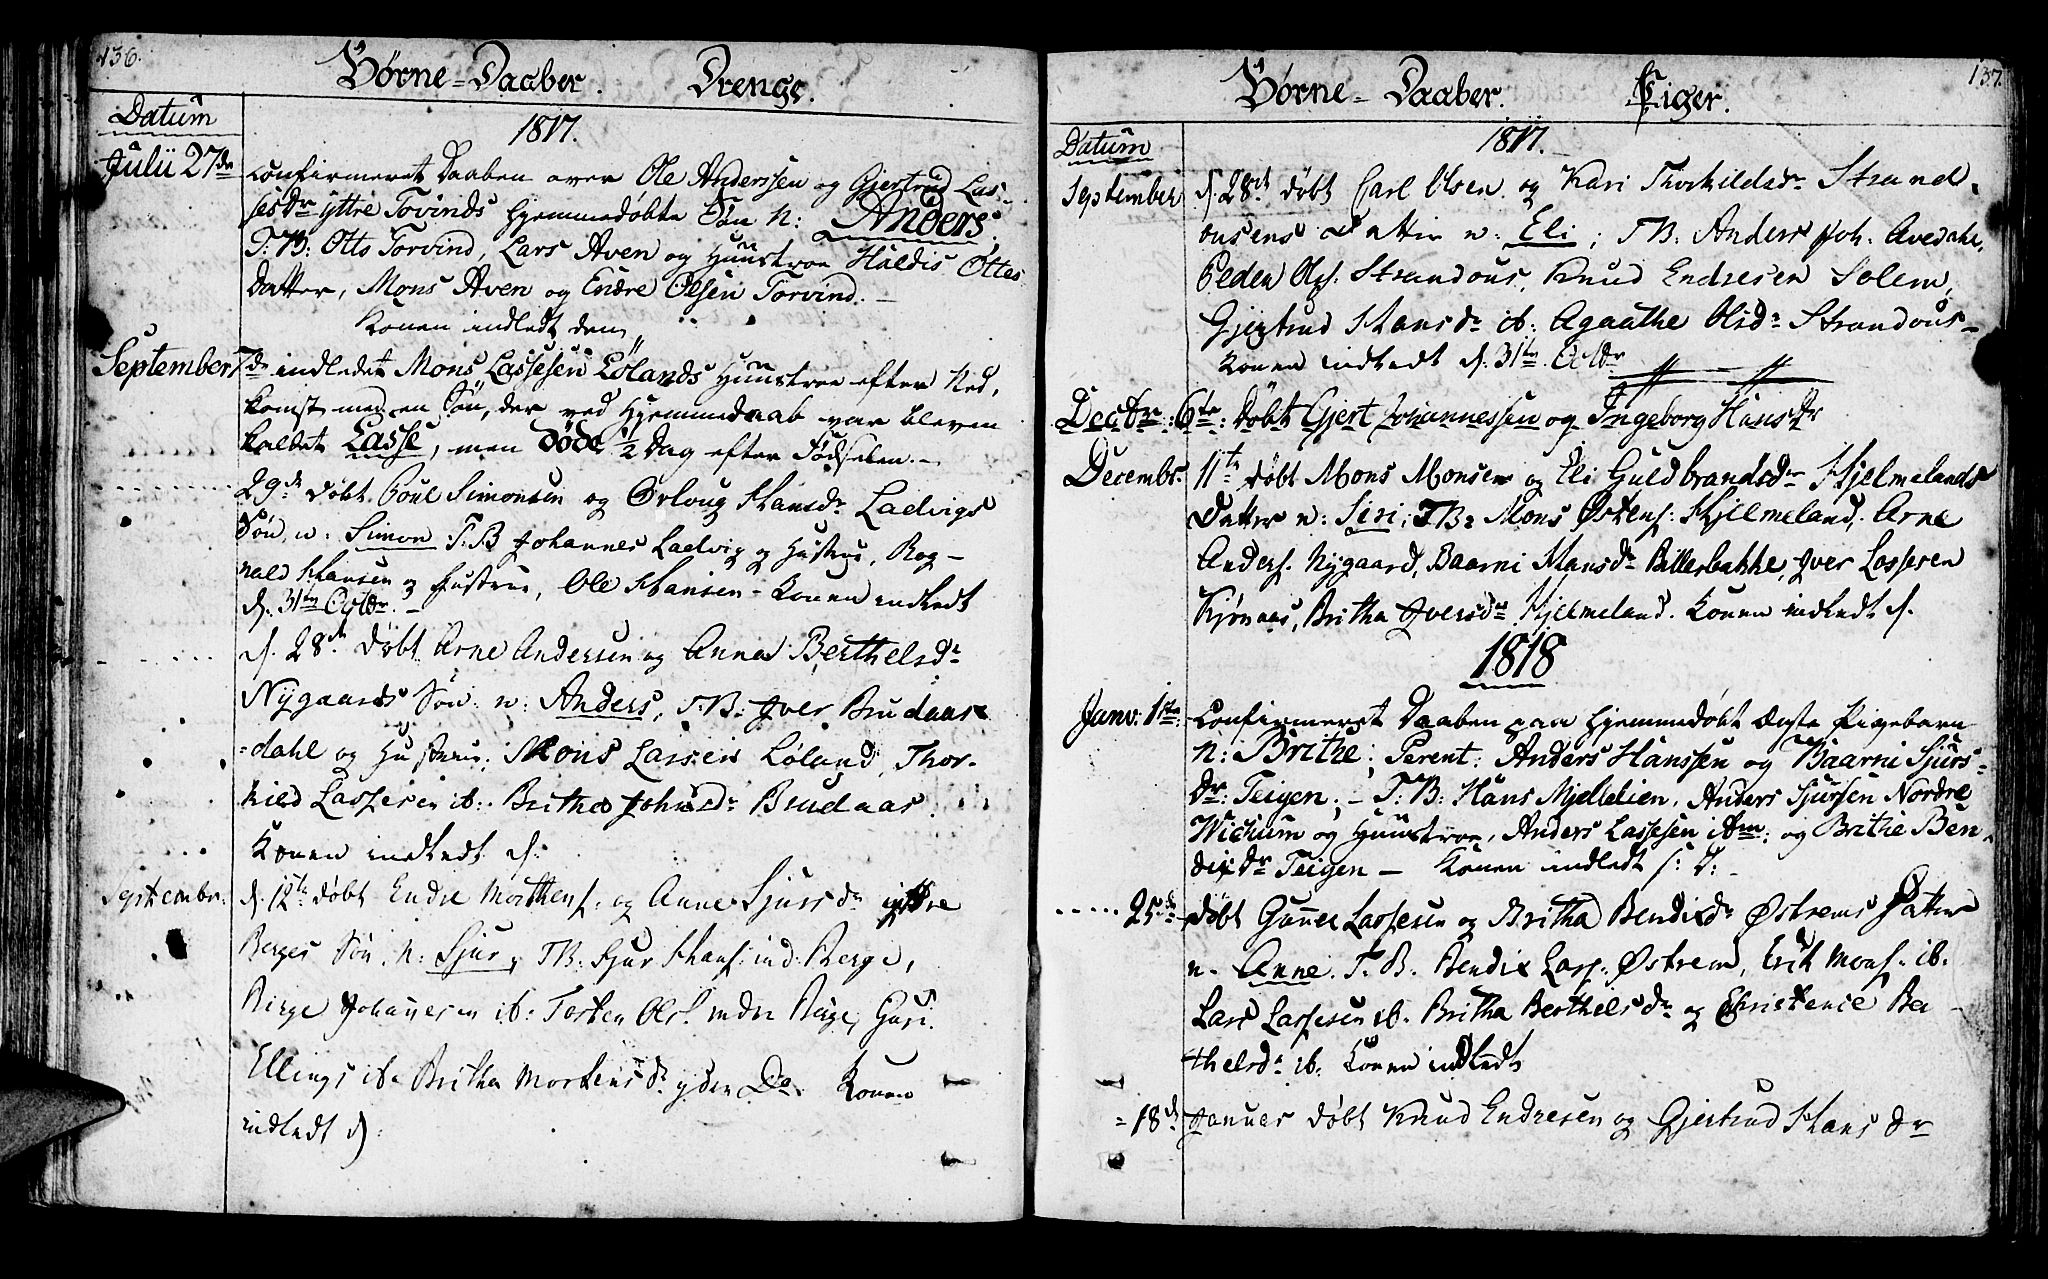 136.
Børne-Daaber. Drenge.
Datum
1817.
Julii 27de confirmeret Daaben over Ole Anderssen og Gjertrud Las-
sesdr yttre Tovinds hjemmedøbte Søn N: Anders.
T:B: Otto Torvind, Lars Aven og Huustroe Haldis Ottes
Datter, Mons Aven og Endre Olsen Torvind. –
Konen indledt den
September 7de indledet Mons Lassesen Lølands Huustroe efter Ned,
komst med en Søn, der ved Hjemmedaab var bleven
kaldet Lasse, men døde 1/2 Dag efter Fødselen. –
29de døbt Poul Simonsen og Orloug Hansdr Ladvigs
Søn, n: Simon T.B Johannes Ladvig og Hustrue, Rog-
nald Hansen og Hustrue, Ole Hansen – Konen indledt
d. 31te Octbr. –
d. 28de døbt Arne Andersen og Anna Berthelsdr
Nygaards Søn n: Anders, T.B: Iver Brudaas
=dahl og Hustrue; Mons Lassen Løland, Thor-
kild Lassesen ib: Britha Johansdr Brudaas.
Konen indledt d:
September: d. 12te døbt Endre Mortens. og Anne Sjursdr yttre
Berges Søn, N: Sjur, TB: Sjur Hans. ind: Berge,
Birge Johannesen ib: Torsten Ols. indre Berge, Guri
Ellings ib. Britha Mortensdr ydre Do. Konen
indledt d:
137.
Børne-Daaber. Piger.
Datum
1817.
September d. 28de døbt Carl Olsen og Kari Thorkildsdr Strand,
ousens Datter n: Eli; TB: Anders Joh. Avedahl,
Peder Ols. Strandous, Knud Endresen Solem,
Gjertrud Hansdr ib: Agaathe Olsdr Strandous –
Konen indledt d. 31te Octbr
Decbr: 6te: Døbt Gjert Johannessen og Ingeborg Hansdr
Decembr. 11te døbt Mons Monsen og Eli Guldbrandsdr Hjelmelands
Datter n: Siri; TB: Mons Østens. Hjelmeland, Arne
Anders. Nygaard, Baarni Mansdr Billerbakke, Iver Lassesen
Kjønaas, Britha Iversdr Hjelmeland. Konen indledt d.
1818
Janv: 1ste: Confirmeret Daaben paa hjemmedøbt Ægte Pigebarn
N: Brithe; Parent: Anders Hanssen og Baarni Sjurs-
dr: Teigen; – T.B: Hans Mjellelien, Anders Sjursen Nordre
Wichum og Huustroe, Anders Lassesen ibm: og Brithe Ben-
dixdr Teigen – Konen indledt s: D: –
..... 25de døbt Gunner Lassesen og Britha Bendixdr Østrems Datter
n. Anne. T.B. Bendix Lass: Østrem, Erik Mons. ib.
Lars Lassesen ib. Britha Berthelsdr og Christence Ber-
thelsdr ib. Konen indledt
= 18de Januar døbt Knud Endresen og Gjertrud Hansdr